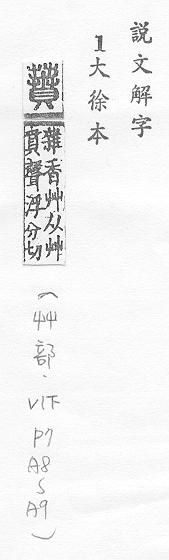 説文解字
1大徐本
蕡
雜香艸从艸
賁聲浮分切
(艸部.V1下
P7
A8
~
A9)